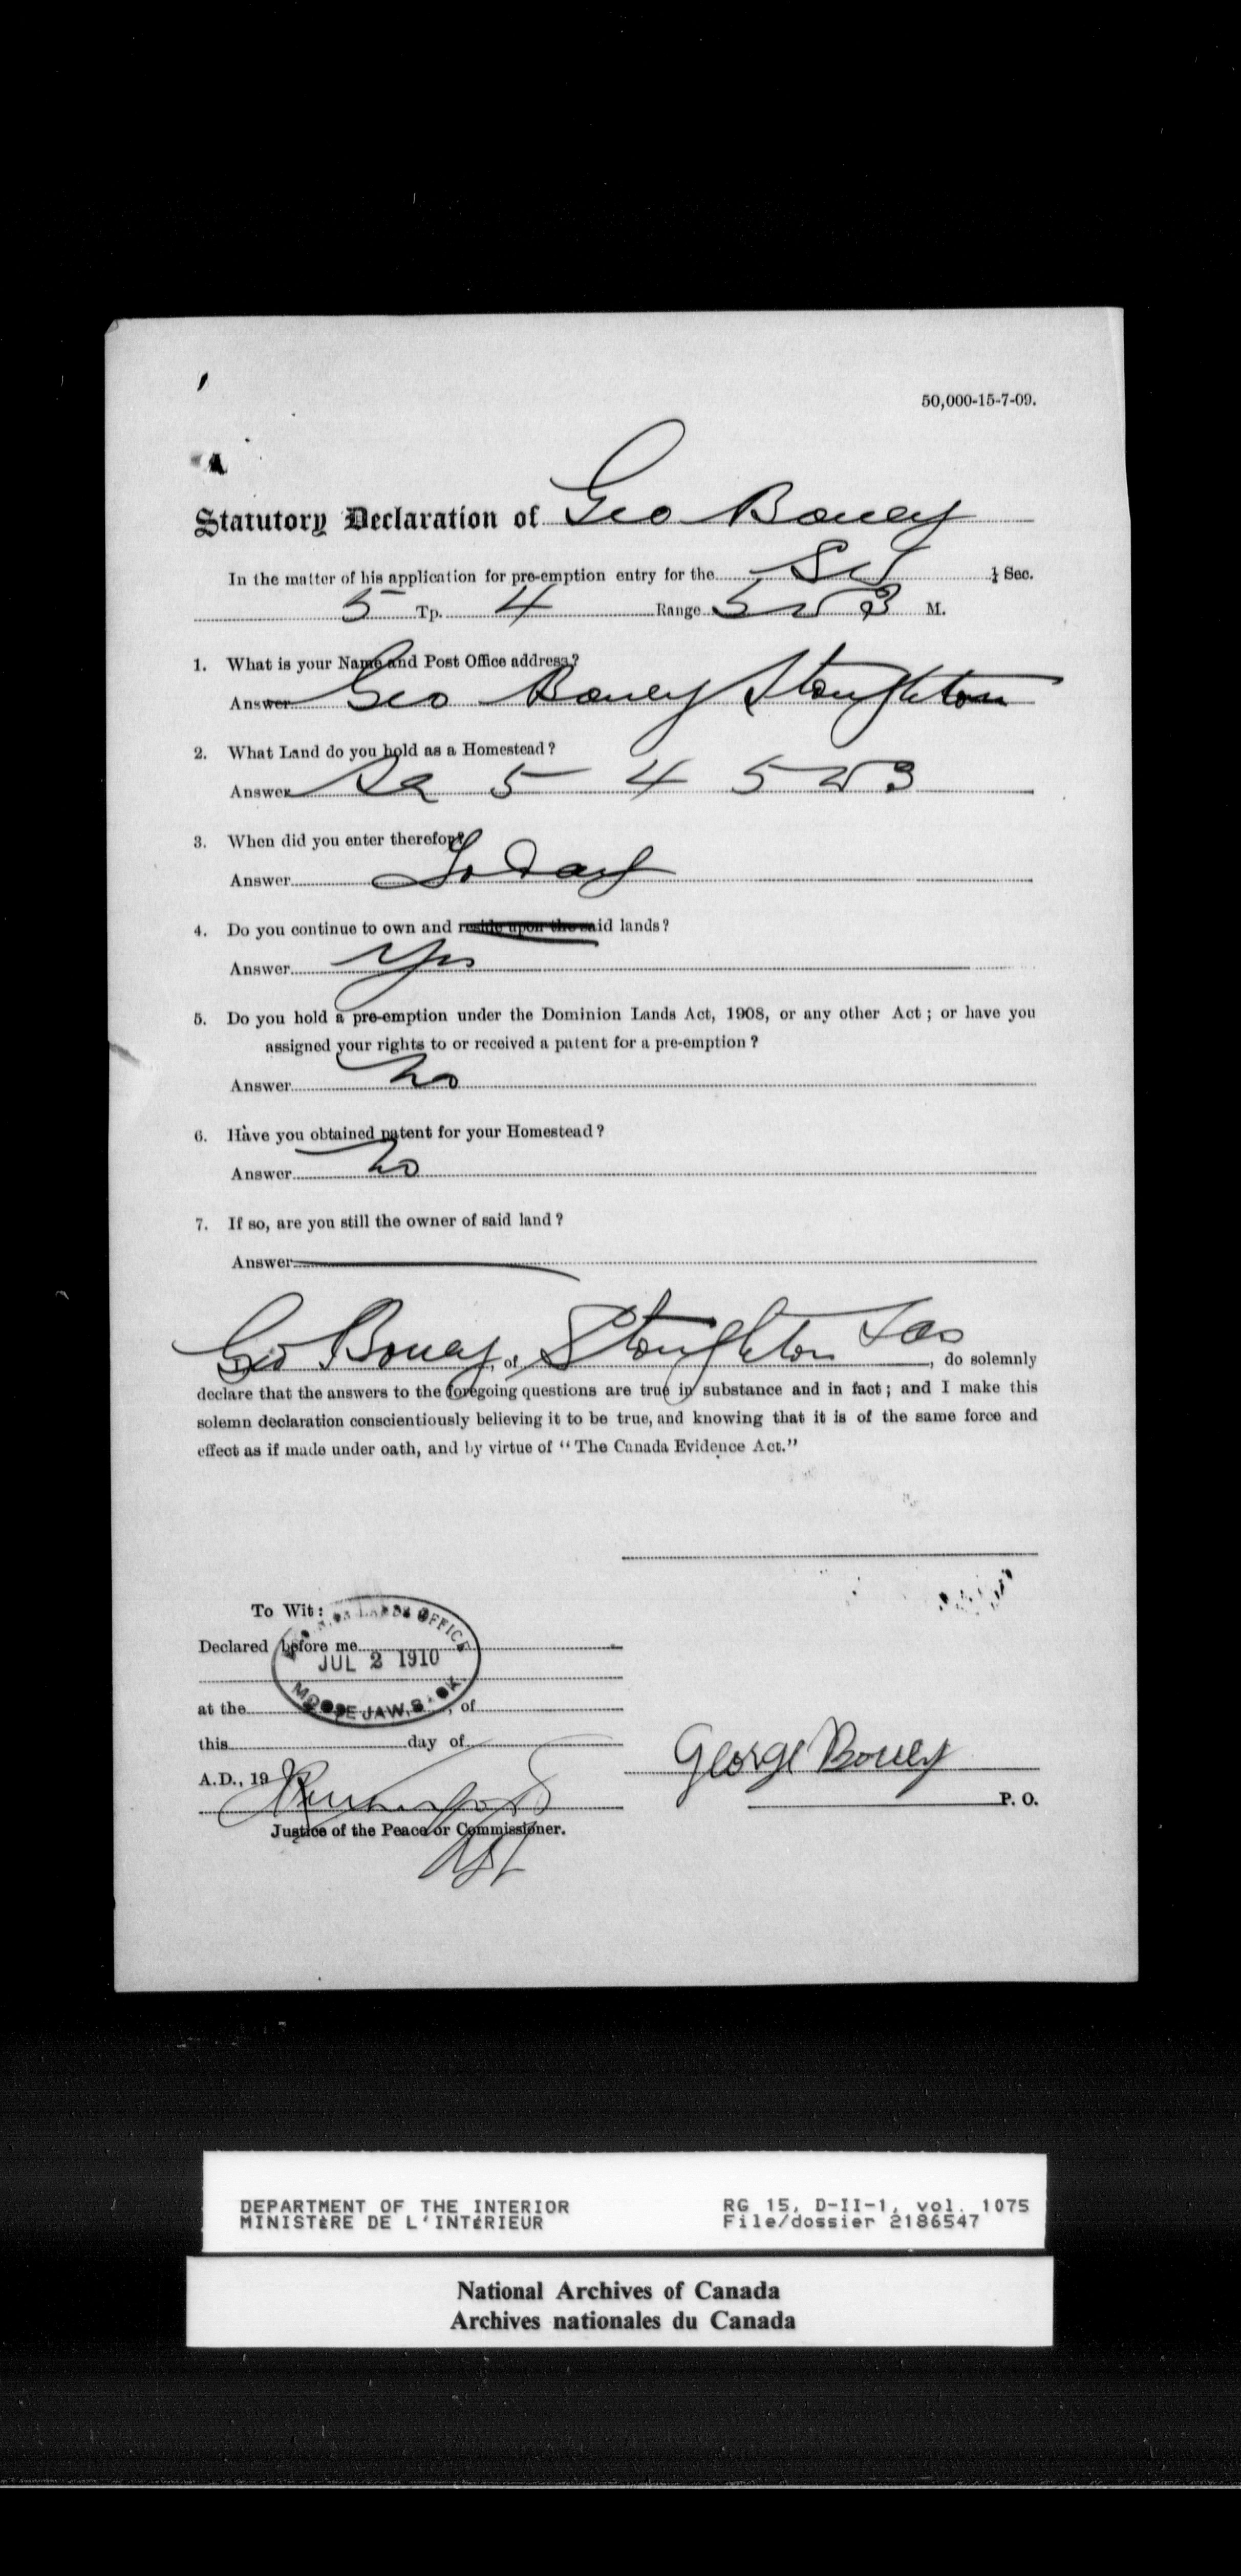 50,000-15-7-09.
Statutory Declaration of Geo Bouey
In the matter of his application for pre-emption entry for the SW ¼ Sec.
5 Tp. 4 Range 5 W 3 M.
1. What is your Name and Post Office address?
Answer Geo Bouey Stoughton
2. What Land do you hold as a Homestead?
Answer Se 5 4 5 W 3
3. When did you enter therefor?
Answer Today
4. Do you continue to own and reside upon the said lands?
Answer Yes
5. Do you hold a pre-emption under the Dominion Lands Act, 1908, or any other Act; or have you
assigned your rights to or received a patent for a pre-emption?
Answer No
6. Have you obtained patent for your Homestead?
Answer No
7. If so, are you still the owner of said land?
Answer
Geo Bouey, of Stoughton Sas, do solemnly
declare that the answers to the foregoing questions are true in substance and in fact; and I make this
solemn declaration conscientiously believing it to be true, and knowing that it is of the same force and
effect as if made under oath, and by virtue of "The Canada Evidence Act."
To Wit:
LANDS OFFICE
Declared before me
JUL 2 1910
MOOSE JAW, SASK.
at the , of
this day of
George Bouey
A.D., 19
P. O.
Justice of the Peace or Commissioner.
DEPARTMENT OF THE INTERIOR
MINISTÈRE DE L'INTÉRIEUR
RG 15, D-II-1, vol. 1075
File/dossier 2186547
National Archives of Canada
Archives nationales du Canada